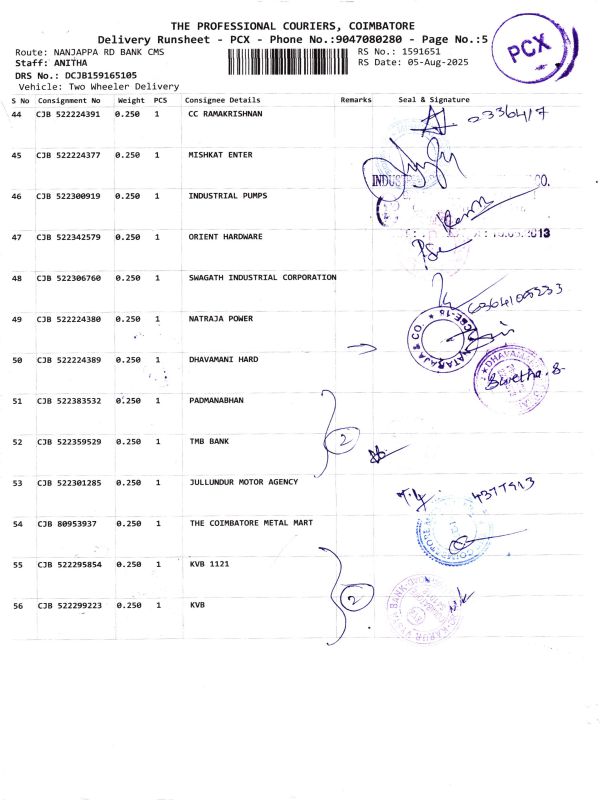 THE PROFESSIONAL COURIERS, COIMBATORE
Delivery Runsheet - PCX - Phone No.:9047080280 - Page No.:5
PCX
Route: NANJAPPA RD BANK CMS
RS No.: 1591651
Staff: ANITHA
RS Date: 05-Aug-2025
DRS No.: DCJB159165105
Vehicle: Two Wheeler Delivery
S No Consignment No Weight PCS Consignee Details Remarks Seal & Signature
44 CJB 522224391 0.250 1 CC RAMAKRISHNAN
45 CJB 522224377 0.250 1 MISHKAT ENTER
46 CJB 522300919 0.250 1 INDUSTRIAL PUMPS
47 CJB 522342579 0.250 1 ORIENT HARDWARE
48 CJB 522306760 0.250 1 SWAGATH INDUSTRIAL CORPORATION
49 CJB 522224380 0.250 1 NATRAJA POWER
NATARAJA & CO.
CBE-18
50 CJB 522224389 0.250 1 DHAVAMANI HARD
Swetha.S
51 CJB 522383532 0.250 1 PADMANABHAN
2
52 CJB 522359529 0.250 1 TMB BANK
53 CJB 522301285 0.250 1 JULLUNDUR MOTOR AGENCY
54 CJB 80953937 0.250 1 THE COIMBATORE METAL MART
55 CJB 522295854 0.250 1 KVB 1121
2
56 CJB 522299223 0.250 1 KVB